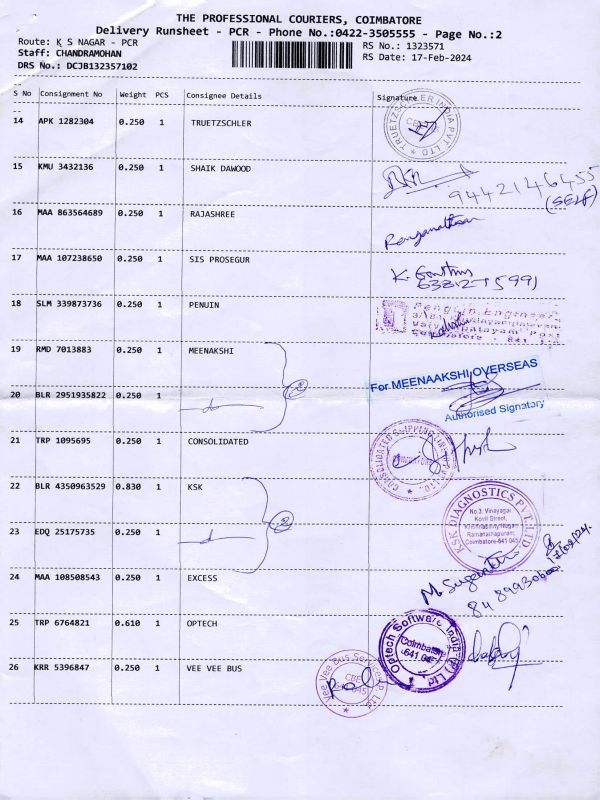 THE PROFESSIONAL COURIERS, COIMBATORE
Delivery Runsheet - PCR - Phone No.:0422-3505555 - Page No.:2
Route: K S NAGAR - PCR
RS No.: 1323571
Staff: CHANDRAMOHAN
RS Date: 17-Feb-2024
DRS No.: DCJB132357102
S No Consignment No Weight PCS Consignee Details Signature
14 APK 1282304 0.250 1 TRUETZSCHLER
15 KMU 3432136 0.250 1 SHAIK DAWOOD
9442146455
(SELF)
16 MAA 863564689 0.250 1 RAJASHREE
Renganathan
17 MAA 107238650 0.250 1 SIS PROSEGUR
18 SLM 339873736 0.250 1 PENUIN
19 RMD 7013883 0.250 1 MEENAKSHI
For MEENAAKSHI OVERSEAS
20 BLR 2951935822 0.250 1
2
Authorised Signatory
21 TRP 1095695 0.250 1 CONSOLIDATED
22 BLR 4350963529 0.830 1 KSK
KSK DIAGNOSTICS PVT.LTD.
No.3, Vinayagar
Kovil Street,
Krishnasamy Nagar
Ramanathapuram,
Coimbatore-641 045
23 EDQ 25175735 0.250 1
2
17/02/24.
24 MAA 108508543 0.250 1 EXCESS
25 TRP 6764821 0.610 1 OPTECH
Optech Software India (P) Ltd
Coimbatore
641 045
26 KRR 5396847 0.250 1 VEE VEE BUS
Vee Vee Bus Services P Ltd
CBE
641 045